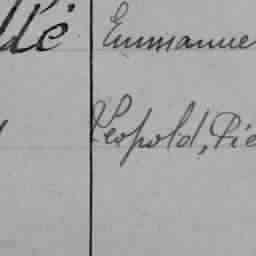 Emmanue
Léopold, Pie